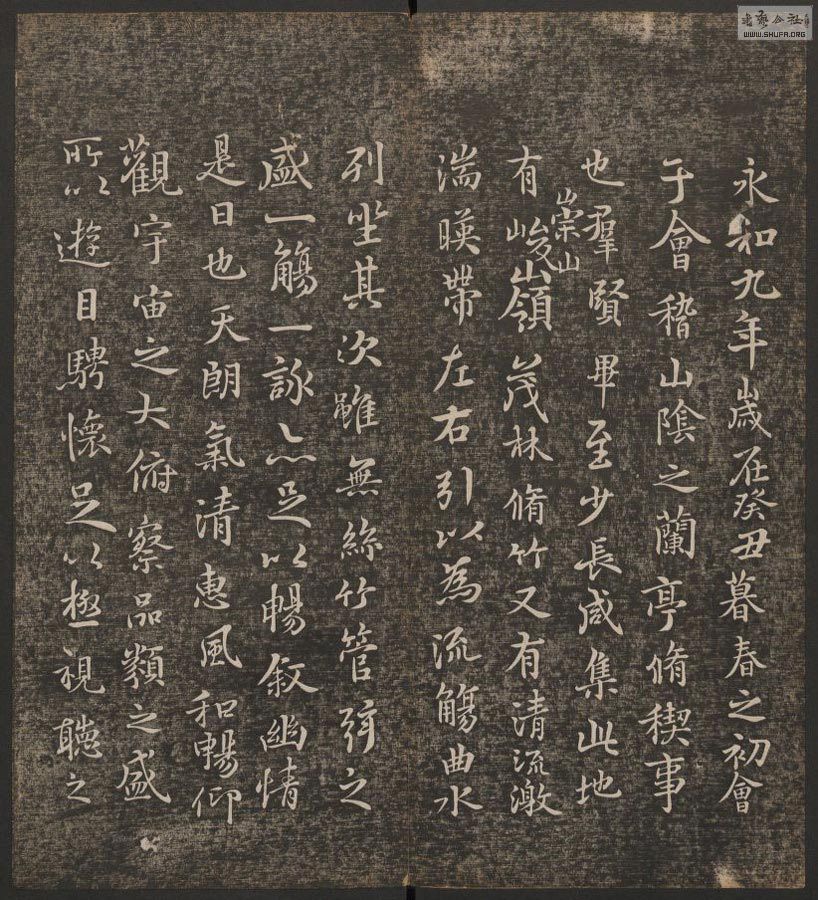 永和九年歲在癸丑暮春之初會
于會稽山陰之蘭亭脩稧事
也羣賢畢至少長咸集此地
有崇山峻領茂林脩竹又有清流激
湍暎帶左右引以為流觴曲水
列坐其次雖無絲竹管弦之
盛一觴一詠亦足以暢敘幽情
是日也天朗氣清惠風和暢仰
觀宇宙之大俯察品類之盛
所以遊目騁懷足以極視聽之
書藝公社
WWW.SHUFA.ORG